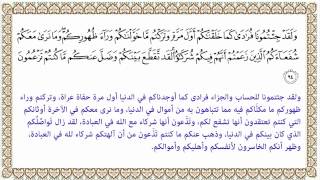 وَلَقَدْ جِئْتُمُونَا فُرَٰدَىٰ كَمَا خَلَقْنَٰكُمْ أَوَّلَ مَرَّةٍ وَتَرَكْتُم مَّا خَوَّلْنَٰكُمْ وَرَآءَ ظُهُورِكُمْ وَمَا نَرَىٰ مَعَكُمْ
شُفَعَآءَكُمُ ٱلَّذِينَ زَعَمْتُمْ أَنَّهُمْ فِيكُمْ شُرَكَٰٓؤُا۟ لَقَد تَّقَطَّعَ بَيْنَكُمْ وَضَلَّ عَنكُم مَّا كُنتُمْ تَزْعُمُونَ
٩٤
ولقد جئتمونا للحساب والجزاء فرادى كما أوجدناكم في الدنيا أول مرة حفاة عراة، وتركتم وراء
ظهوركم ما مكنَّاكم فيه مما تتباهون به من أموال في الدنيا، وما نرى معكم في الآخرة أوثانكم
التي كنتم تعتقدون أنها تشفع لكم، وتَدَّعون أنها شركاء مع الله في العبادة، لقد زال تَواصُلُكم
الذي كان بينكم في الدنيا، وذهب عنكم ما كنتم تَدَّعون من أن آلهتكم شركاء لله في العبادة،
وظهر أنكم الخاسرون لأنفسكم وأهليكم وأموالكم.